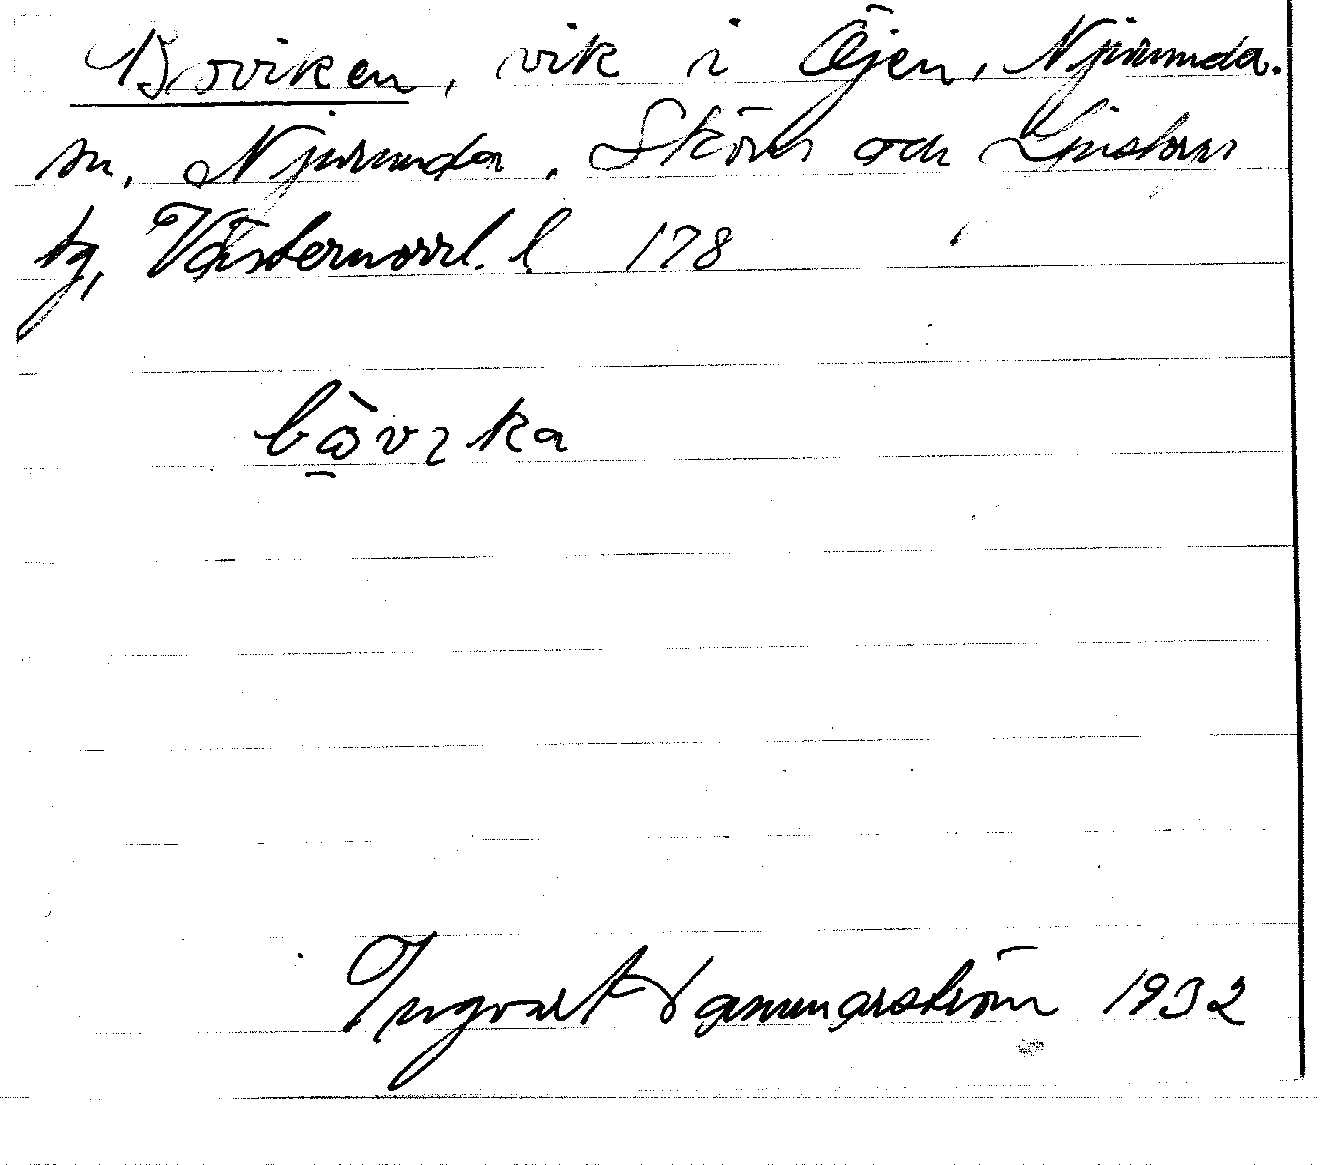 Boviken, vik i Öjen, Njurunda.
sn, Njurunda, Sköns och Ljustorps
tg, Västernorrl. l. 178
Ingvar Hammarström 1932